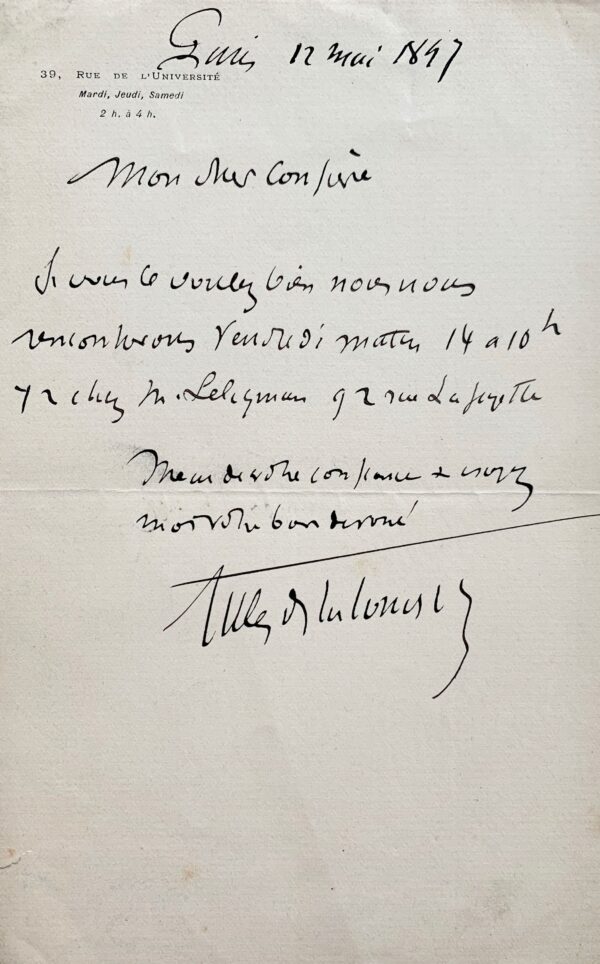 Paris 12 mai 1897
39, RUE DE L'UNIVERSITÉ
Mardi, Jeudi, Samedi
2 h. à 4 h.
Mon cher confrère
Si vous le voulez bien nous nous
rencontrerons Vendredi matin 14 a 10h
1/2 chez M. 92 rue Lafayette
Merci de votre confiance & croyez
moi votre bien dévoué
Gilles de la Tourette